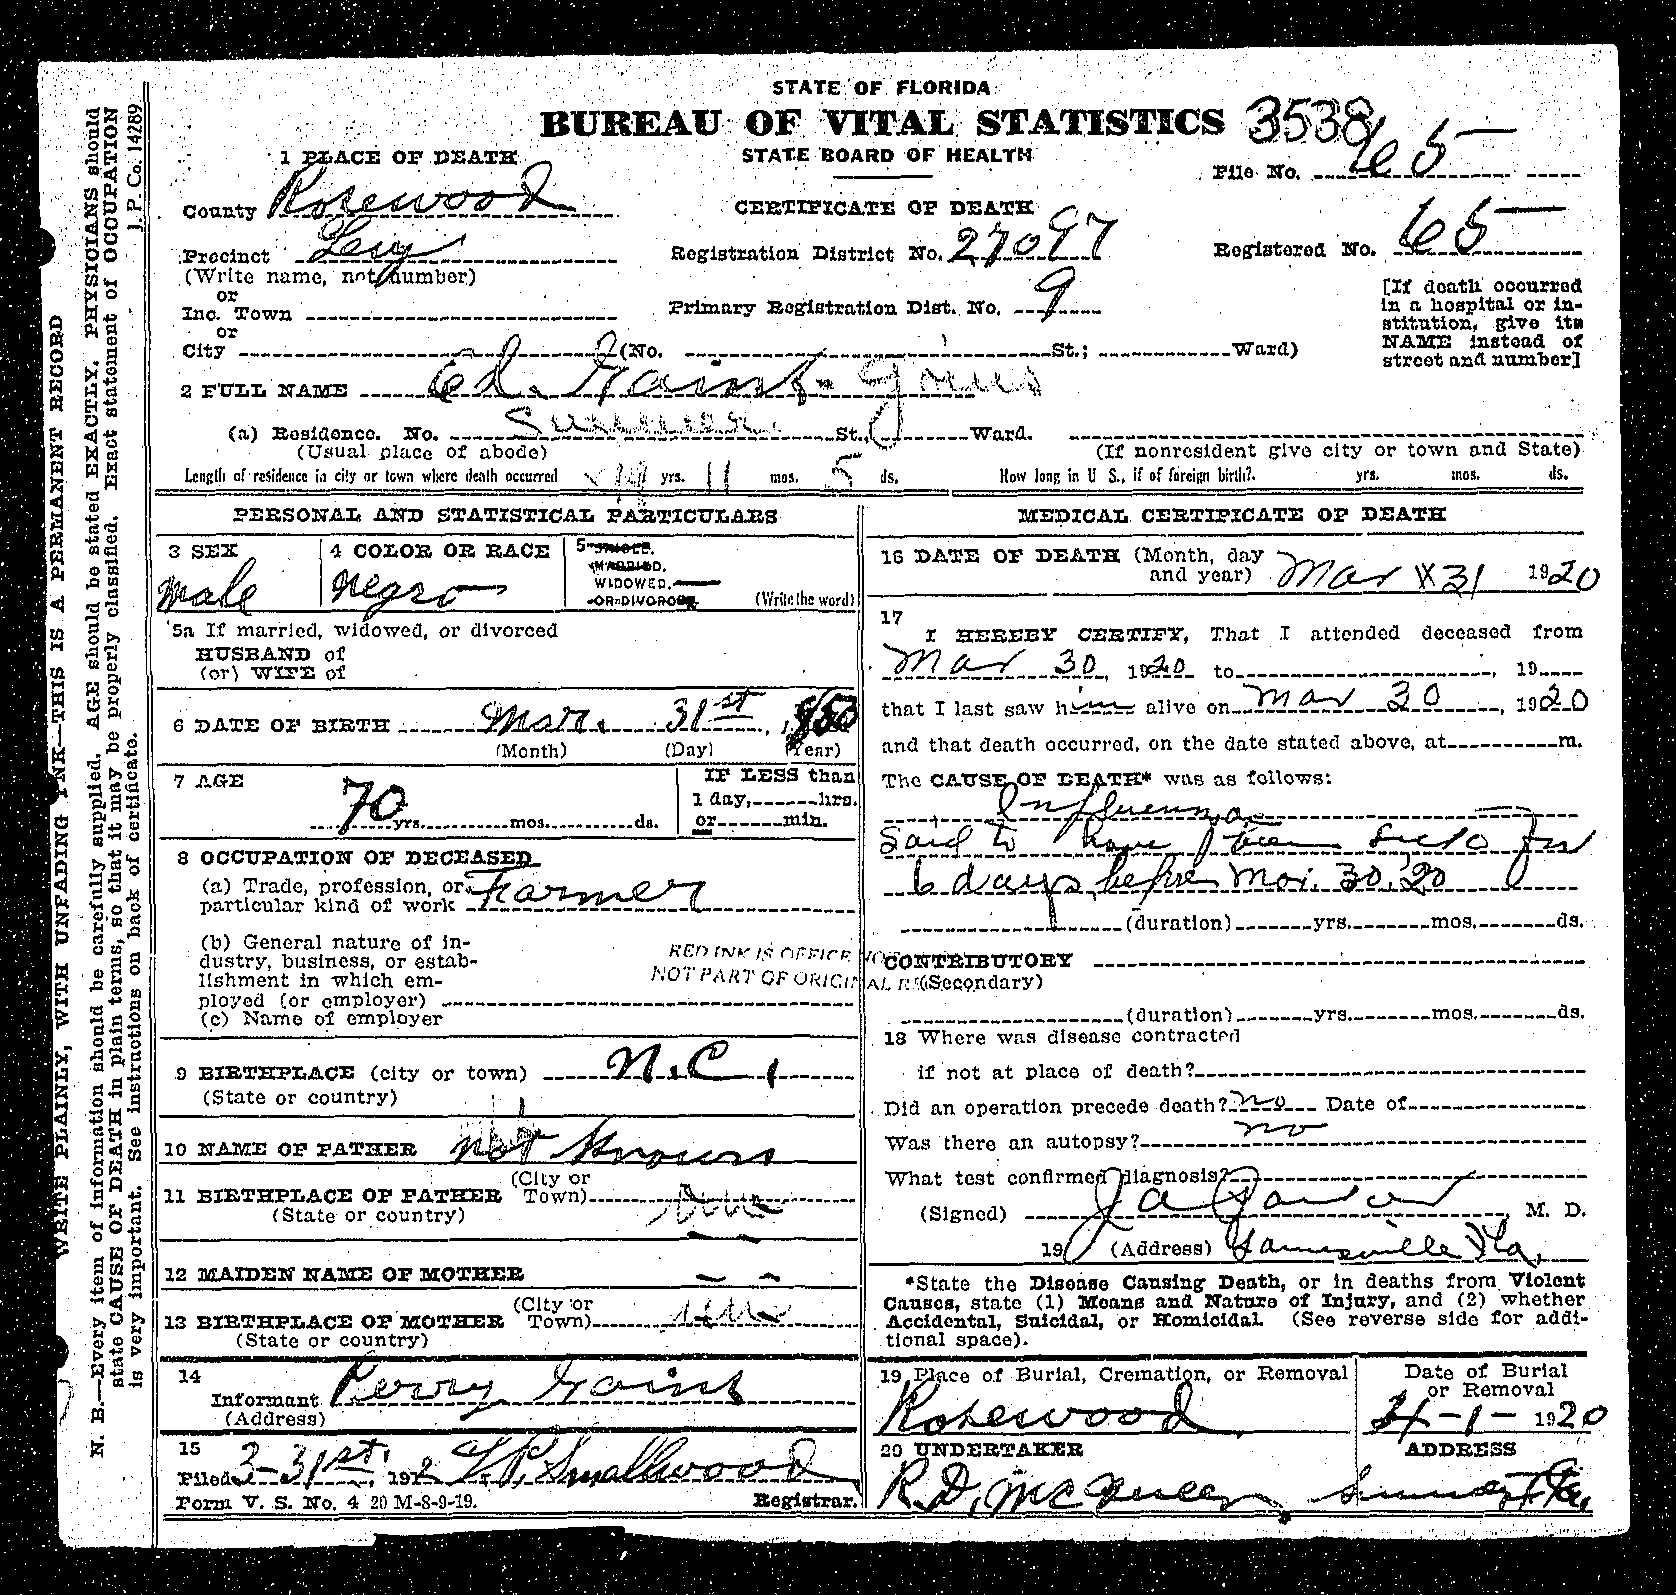 STATE OF FLORIDA
BUREAU OF VITAL STATISTICS 3538
STATE BOARD OF HEALTH
CERTIFICATE OF DEATH
File No. 65
1 PLACE OF DEATH
County Rosewood
Precinct Levy
(Write name, not number)
or
Inc. Town
or
City (No. St.; Ward)
Registration District No. 27097
Primary Registration Dist. No. 9
Registered No. 65
[If death occurred
in a hospital or in-
stitution, give its
NAME instead of
street and number]
2 FULL NAME Ed. Gaint-Goins
(a) Residence. No. Sumner St., Ward.
(Usual place of abode) (If nonresident give city or town and State)
Length of residence in city or town where death occurred yrs. 11 mos. 5 ds. How long in U S., if of foreign birth?. yrs. mos. ds.
PERSONAL AND STATISTICAL PARTICULARS
3 SEX
male
4 COLOR OR RACE
negro
5 SINGLE.
MARRIED.
WIDOWED.
OR DIVORCED (Write the word)
5a If married, widowed, or divorced
HUSBAND of
(or) WIFE of
6 DATE OF BIRTH Mar. 31st, 1850
(Month) (Day) (Year)
7 AGE
70 yrs. mos. ds.
IF LESS than
1 day, hrs.
or min.
8 OCCUPATION OF DECEASED
(a) Trade, profession, or
particular kind of work Farmer
(b) General nature of in-
dustry, business, or estab-
lishment in which em-
ployed (or employer)
(c) Name of employer
RED INK IS OFFICE
NOT PART OF ORIGINAL
9 BIRTHPLACE (city or town) N.C.
(State or country)
10 NAME OF FATHER not known
11 BIRTHPLACE OF FATHER (City or Town)
(State or country)
12 MAIDEN NAME OF MOTHER
13 BIRTHPLACE OF MOTHER (City or Town)
(State or country)
14
Informant Perry Goins
(Address)
15
Filed 3-31st, 192 Smallwood
Form V. S. No. 4 20 M-8-9-19. Registrar.
MEDICAL CERTIFICATE OF DEATH
16 DATE OF DEATH (Month, day
and year) Mar 31 1920
17
I HEREBY CERTIFY, That I attended deceased from
Mar 30, 1920 to , 19
that I last saw him alive on Mar 30, 1920
and that death occurred, on the date stated above, at m.
The CAUSE OF DEATH* was as follows:
Influenza
Said to have been sick for
6 days before Mar. 30, 20
(duration) yrs. mos. ds.
CONTRIBUTORY
(Secondary)
(duration) yrs. mos. ds.
18 Where was disease contracted
if not at place of death?
Did an operation precede death? no Date of
Was there an autopsy? no
What test confirmed diagnosis?
(Signed) J a , M. D.
19 (Address) Gainesville Fla,
*State the Disease Causing Death, or in deaths from Violent
Causes, state (1) Means and Nature of Injury, and (2) whether
Accidental, Suicidal, or Homicidal. (See reverse side for addi-
tional space).
19 Place of Burial, Cremation, or Removal
Rosewood
Date of Burial
or Removal
4-1-1920
20 UNDERTAKER
R.D. McQueen
ADDRESS
Sumner Fla
WRITE PLAINLY, WITH UNFADING INK—THIS IS A PERMANENT RECORD
N. B.—Every item of information should be carefully supplied. AGE should be stated EXACTLY. PHYSICIANS should
state CAUSE OF DEATH in plain terms, so that it may be properly classified. Exact statement of OCCUPATION
is very important. See instructions on back of certificate. J. P. Co. 14289